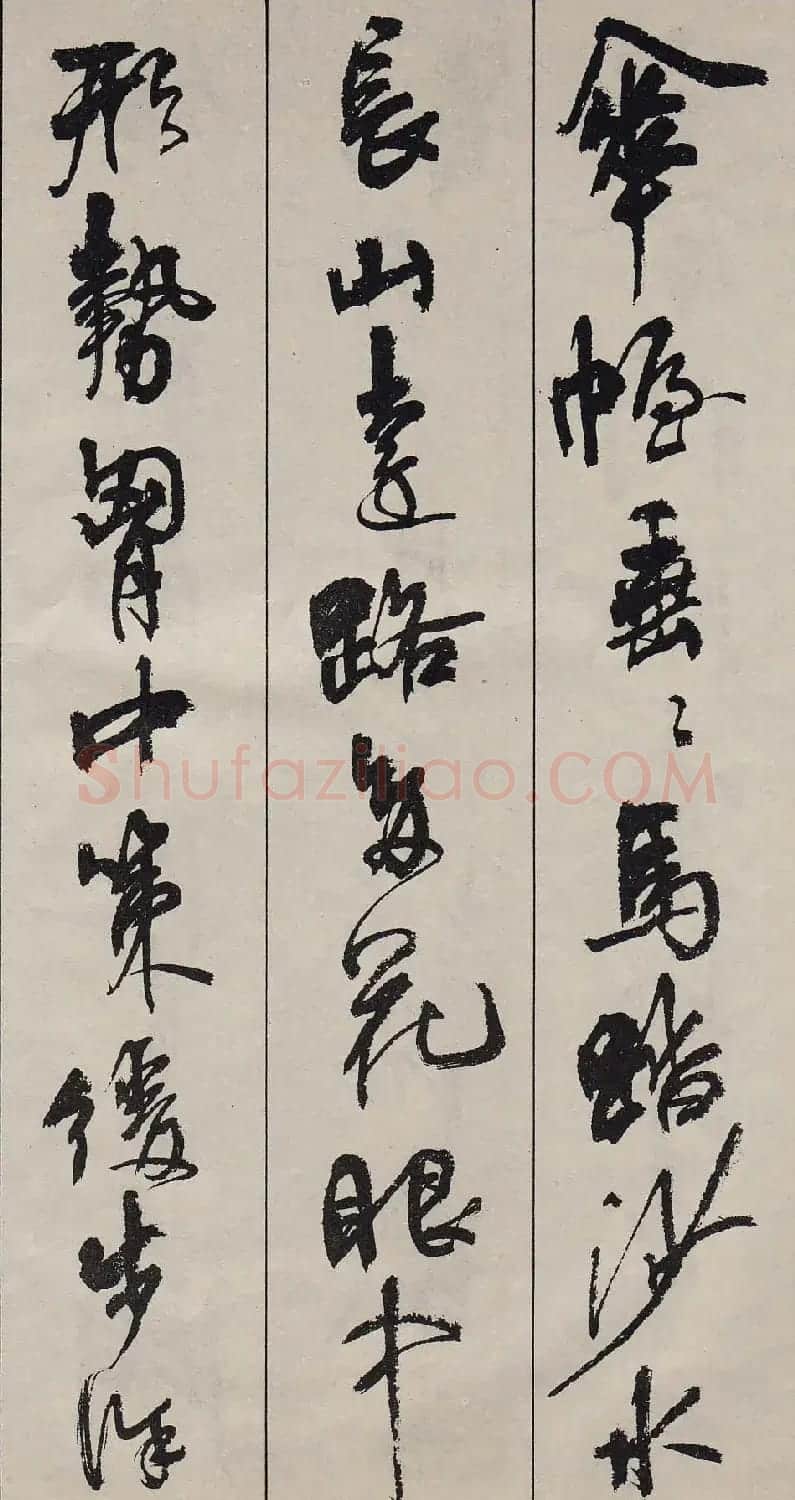 傘幄垂〻馬踏沙水
長山遠路多花眼中
形勢胷中策緩步徐
Shufaziliao.COM